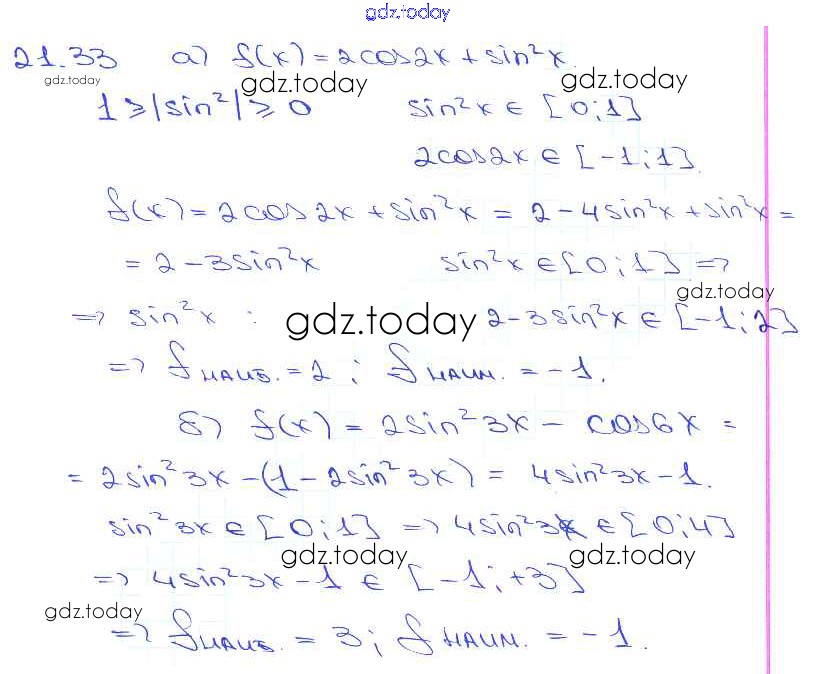 gdz.today
21.33 а) f(x) = 2cos2x + sin²x.
gdz.today gdz.today gdz.today
1 ≥ |sin²| ≥ 0 sin²x ∈ [0;1]
2cos2x ∈ [-1;1].
f(x) = 2cos2x + sin²x = 2 - 4sin²x + sin²x =
= 2 - 3sin²x sin²x ∈ [0;1] =>
gdz.today
=> sin²x : gdz.today 2-3sin²x ∈ [-1;2]
=> fнаиб. = 2; fнаим. = -1.
б) f(x) = 2sin²3x - cos6x =
= 2sin²3x - (1 - 2sin²3x) = 4sin²3x - 1.
sin²3x ∈ [0;1] => 4sin²3x ∈ [0;4]
gdz.today gdz.today
=> 4sin²3x - 1 ∈ [-1;+3]
gdz.today
=> fнаиб. = 3; fнаим. = -1.